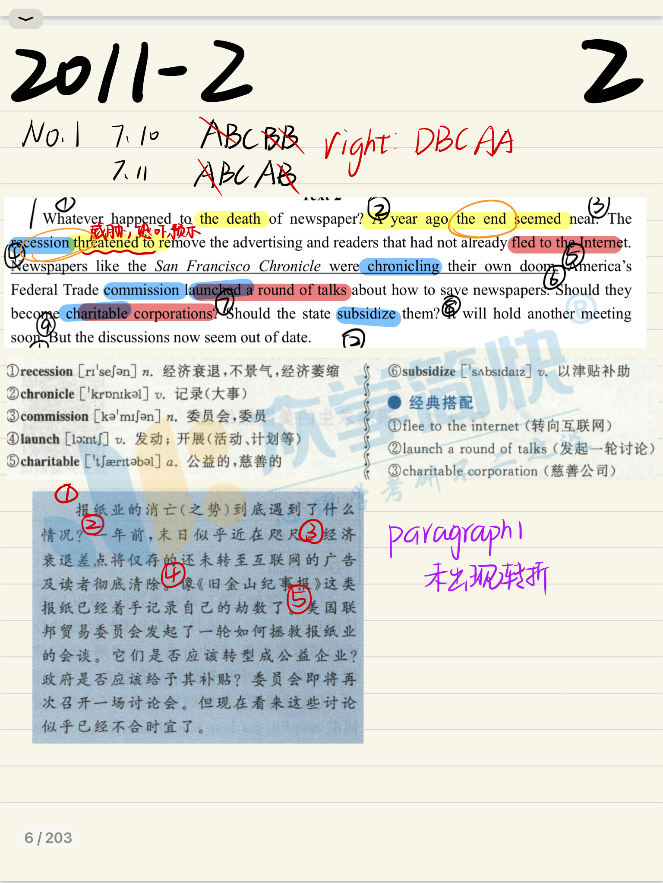 2011-2 2
No.1 7.10 ABCBB right: DBCAA
7.11 ABCAB
Text 2
① ② ③
Whatever happened to the death of newspaper? A year ago the end seemed near. The
感月办,恐吓,预示
④ recession threatened to remove the advertising and readers that had not already fled to the Internet.
⑤
Newspapers like the San Francisco Chronicle were chronicling their own doom. America's
⑥
Federal Trade commission launched a round of talks about how to save newspapers. Should they
⑦ ⑧
become charitable corporations? Should the state subsidize them? It will hold another meeting
⑨
soon. But the discussions now seem out of date.
①recession [rɪˈseʃən] n. 经济衰退,不景气,经济萎缩
②chronicle [ˈkrɒnɪkəl] v. 记录(大事)
③commission [kəˈmɪʃən] n. 委员会,委员
④launch [lɔːntʃ] v. 发动;开展(活动、计划等)
⑤charitable [ˈtʃærɪtəbəl] a. 公益的,慈善的
⑥subsidize [ˈsʌbsɪdaɪz] v. 以津贴补助
经典搭配
①flee to the internet (转向互联网)
②launch a round of talks (发起一轮讨论)
③charitable corporation (慈善公司)
众堂简快®
①
报纸业的消亡(之势)到底遇到了什么
情况?②一年前,末日似乎近在咫尺③经济
衰退差点将仅存的还未转至互联网的广告
及读者彻底清除。④像《旧金山纪事报》这类
报纸已经着手记录自己的劫数了。⑤美国联
邦贸易委员会发起了一轮如何拯救报纸业
的会谈。它们是否应该转型成公益企业?
政府是否应该给予其补贴?委员会即将再
次召开一场讨论会。但现在看来这些讨论
似乎已经不合时宜了。
paragraph1
未出现转折
6 / 203